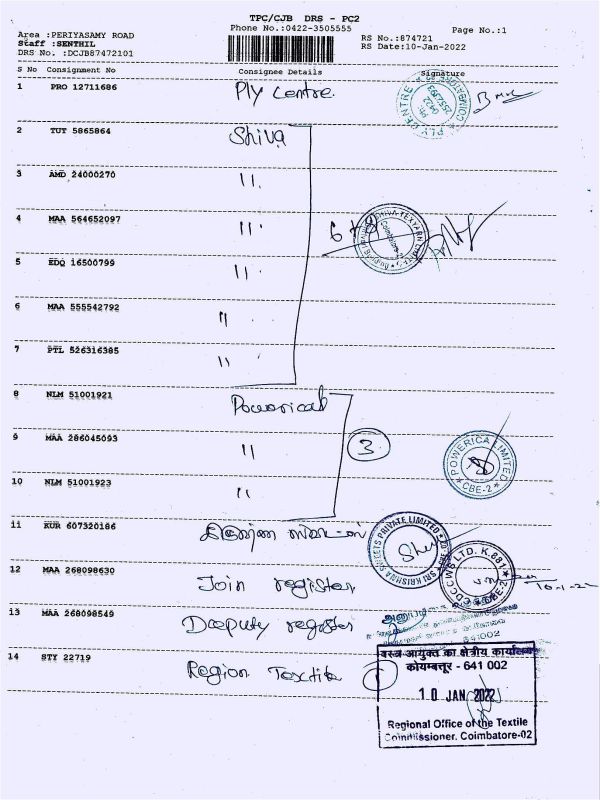 TPC/CJB DRS - PC2
Phone No.:0422-3505555
Page No.:1
Area :PERIYASAMY ROAD
Staff :SENTHIL
DRS No. :DCJB87472101
RS No.:874721
RS Date:10-Jan-2022
S No Consignment No Consignee Details Signature
1 PRO 12711686 Ply Centre.
PLY CENTRE
2 TUT 5865864 Shiva
3 AMD 24000270 "
4 MAA 564652097 "
5 EDQ 16500799 "
6 MAA 555542792 "
7 PTL 526316385 "
8 NLM 51001921 Powerical
9 MAA 286045093 "
3
POWERICA LIMITED
CBE-2
10 NLM 51001923 "
11 KUR 607320186
SRI KRISHNA SWEETS PRIVATE LIMITED
12 MAA 268098630 Join register
CDCCWS LTD. K.881
13 MAA 268098549 Deeputy register
641002
14 STY 22719 Region Textile 1
वस्त्र आयुक्त का क्षेत्रीय कार्यालय
कोयम्बत्तूर - 641 002
10 JAN 2022
Regional Office of the Textile
Commissioner. Coimbatore-02